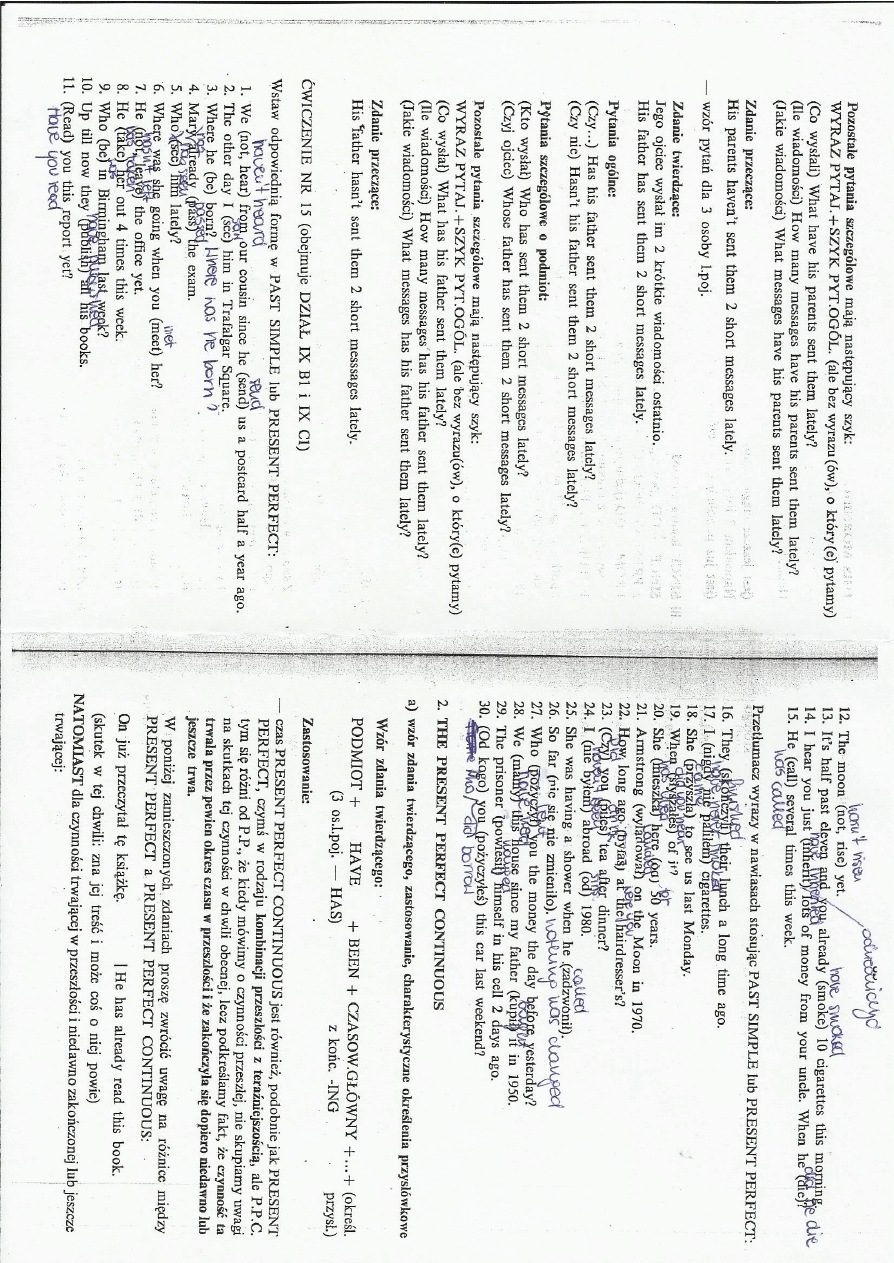 Pozostałe pytania szczegółowe mają następujący szyk:
WYRAZ PYTAJ.+SZYK PYT.OGÓL. (ale bez wyrazu(ów), o który(e) pytamy)
(Co wysłali) What have his parents sent them lately?
(Ile wiadomości) How many messages have his parents sent them lately?
(Jakie wiadomości) What messages have his parents sent them lately?
Zdanie przeczące:
His parents haven't sent them 2 short messages lately.
— wzór pytań dla 3 osoby l.poj.
Zdanie twierdzące:
Jego ojciec wysłał im 2 krótkie wiadomości ostatnio.
His father has sent them 2 short messages lately.
Pytania ogólne:
(Czy...) Has his father sent them 2 short messages lately?
(Czy nie) Hasn't his father sent them 2 short messages lately?
Pytania szczegółowe o podmiot:
(Kto wysłał) Who has sent them 2 short messages lately?
(Czyj ojciec) Whose father has sent them 2 short messages lately?
Pozostałe pytania szczegółowe mają następujący szyk:
WYRAZ PYTAJ.+SZYK PYT.OGÓL. (ale bez wyrazu(ów), o który(e) pytamy)
(Co wysłał) What has his father sent them lately?
(Ile wiadomości) How many messages has his father sent them lately?
(Jakie wiadomości) What messages has his father sent them lately?
Zdanie przeczące:
His father hasn't sent them 2 short messsages lately.
ĆWICZENIE NR 15 (obejmuje DZIAŁ IX B1 i IX C1)
Wstaw odpowiednią formę w PAST SIMPLE lub PRESENT PERFECT:
haven't heard
1. We (not, hear) from our cousin since he (send) us a postcard half a year ago.
2. The other day I (see) him in Trafalgar Square.
3. Where he (be) born? Where was he born?
passed
4. Mary already (pass) the exam.
5. Who (see) him lately?
met
6. Where was she going when you (meet) her?
7. He (not, leave) the office yet.
8. He (take) her out 4 times this week.
9. Who (be) in Birmingham last week?
have published
10. Up till now they (publish) all his books.
11. (Read) you this report yet?
Have you read
hasn't risen
12. The moon (not, rise) yet.
have smoked
13. It's half past eleven and you already (smoke) 10 cigarettes this morning.
have inherited
did he die
14. I hear you just (inherit) lots of money from your uncle. When he (die)?
15. He (call) several times this week.
was called
Przetłumacz wyrazy w nawiasach stosując PAST SIMPLE lub PRESENT PERFECT:
finished
16. They (skończyli) their lunch a long time ago.
17. I (nigdy nie paliłem) cigarettes.
came
18. She (przyszła) to see us last Monday.
did you hear
19. When (słyszałeś) of it?
for
20. She (mieszka) here (od) 50 years.
21. Armstrong (wylądował) on the Moon in 1970.
22. How long ago (byłaś) at the hairdresser's?
23. (Czy) you (piłeś) tea after dinner?
haven't been since
24. I (nie byłem) abroad (od) 1980.
called
25. She was having a shower when he (zadzwonił).
26. So far (nic się nie zmieniło). nothing was changed
27. Who (pożyczył) you the money the day before yesterday?
have had bought
28. We (mamy) this house since my father (kupił) it in 1950.
29. The prisoner (powiesił) himself in his cell 2 days ago.
30. (Od kogo) you (pożyczyłeś) this car last weekend?
did borrow
2. THE PRESENT PERFECT CONTINUOUS
a) wzór zdania twierdzącego, zastosowanie, charakterystyczne określenia przysłówkowe
Wzór zdania twierdzącego:
PODMIOT + HAVE + BEEN + CZASOW.GŁÓWNY +...+ (okreśł.
(3 os.l.poj. — HAS) z końc. -ING przysł.)
Zastosowanie:
— czas PRESENT PERFECT CONTINUOUS jest również, podobnie jak PRESENT
PERFECT, czymś w rodzaju kombinacji przeszłości z teraźniejszością, ale P.P.C.
tym się różni od P.P., że kiedy mówimy o czynności przeszłej, nie skupiamy uwagi
na skutkach tej czynności w chwili obecnej, lecz podkreślamy fakt, że czynność ta
trwała przez pewien okres czasu w przeszłości i że zakończyła się dopiero niedawno lub
jeszcze trwa.
W poniżej zamieszczonych zdaniach proszę zwrócić uwagę na różnice między
PRESENT PERFECT a PRESENT PERFECT CONTINUOUS:
On już przeczytał tę książkę. | He has already read this book.
(skutek w tej chwili: zna jej treść i może coś o niej powie)
NATOMIAST dla czynności trwającej w przeszłości i niedawno zakończonej lub jeszcze
trwającej: